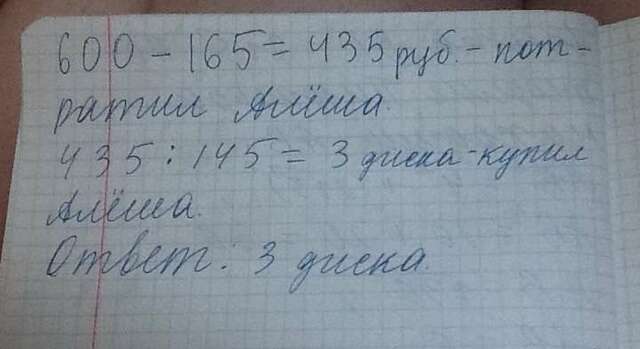 600 - 165 = 435 руб. - пот-
ратил Алёша.
435 : 145 = 3 диска - купил
Алёша.
Ответ: 3 диска.